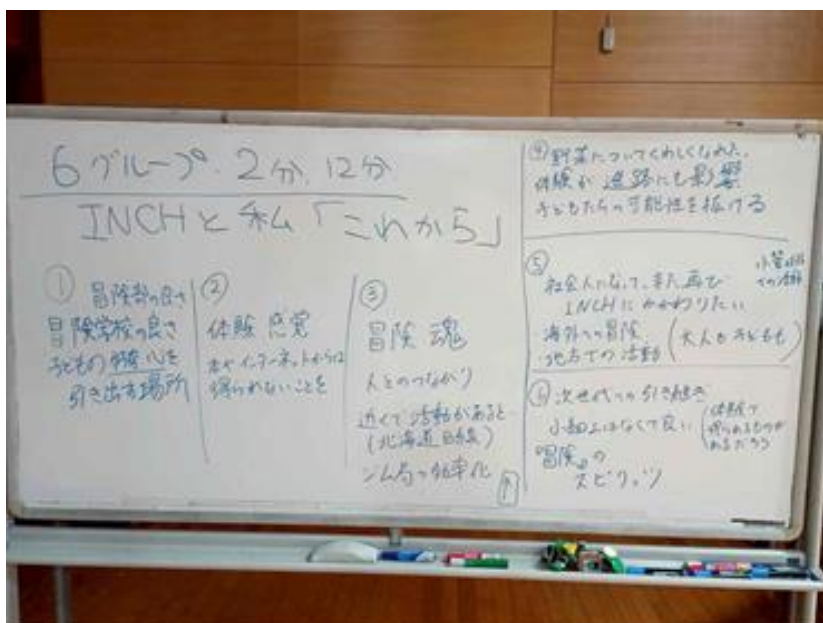 6グループ・2分、12分
INCHと私「これから」
①冒険教の良さ
冒険学校の良さ
子どもの好奇心を
引き出す場所
②
体験 感覚
本やインターネットからは
得られないことを
③
冒険 魂
人とのつながり
近くで活動があると
(北海道
ム局の効率化
④野菜についてくわしくなれた。
体験が進路にも影響
子どもたちの可能性を拡げる
⑤
社会人になって、また再び
INCHにかかわりたい
海外への冒険
地方での活動(大人も子どもも)
⑥次世代への引き継ぎ
なくて良い
(体験で
得られるものが
あるだろう
『冒険』の
スピリッツ